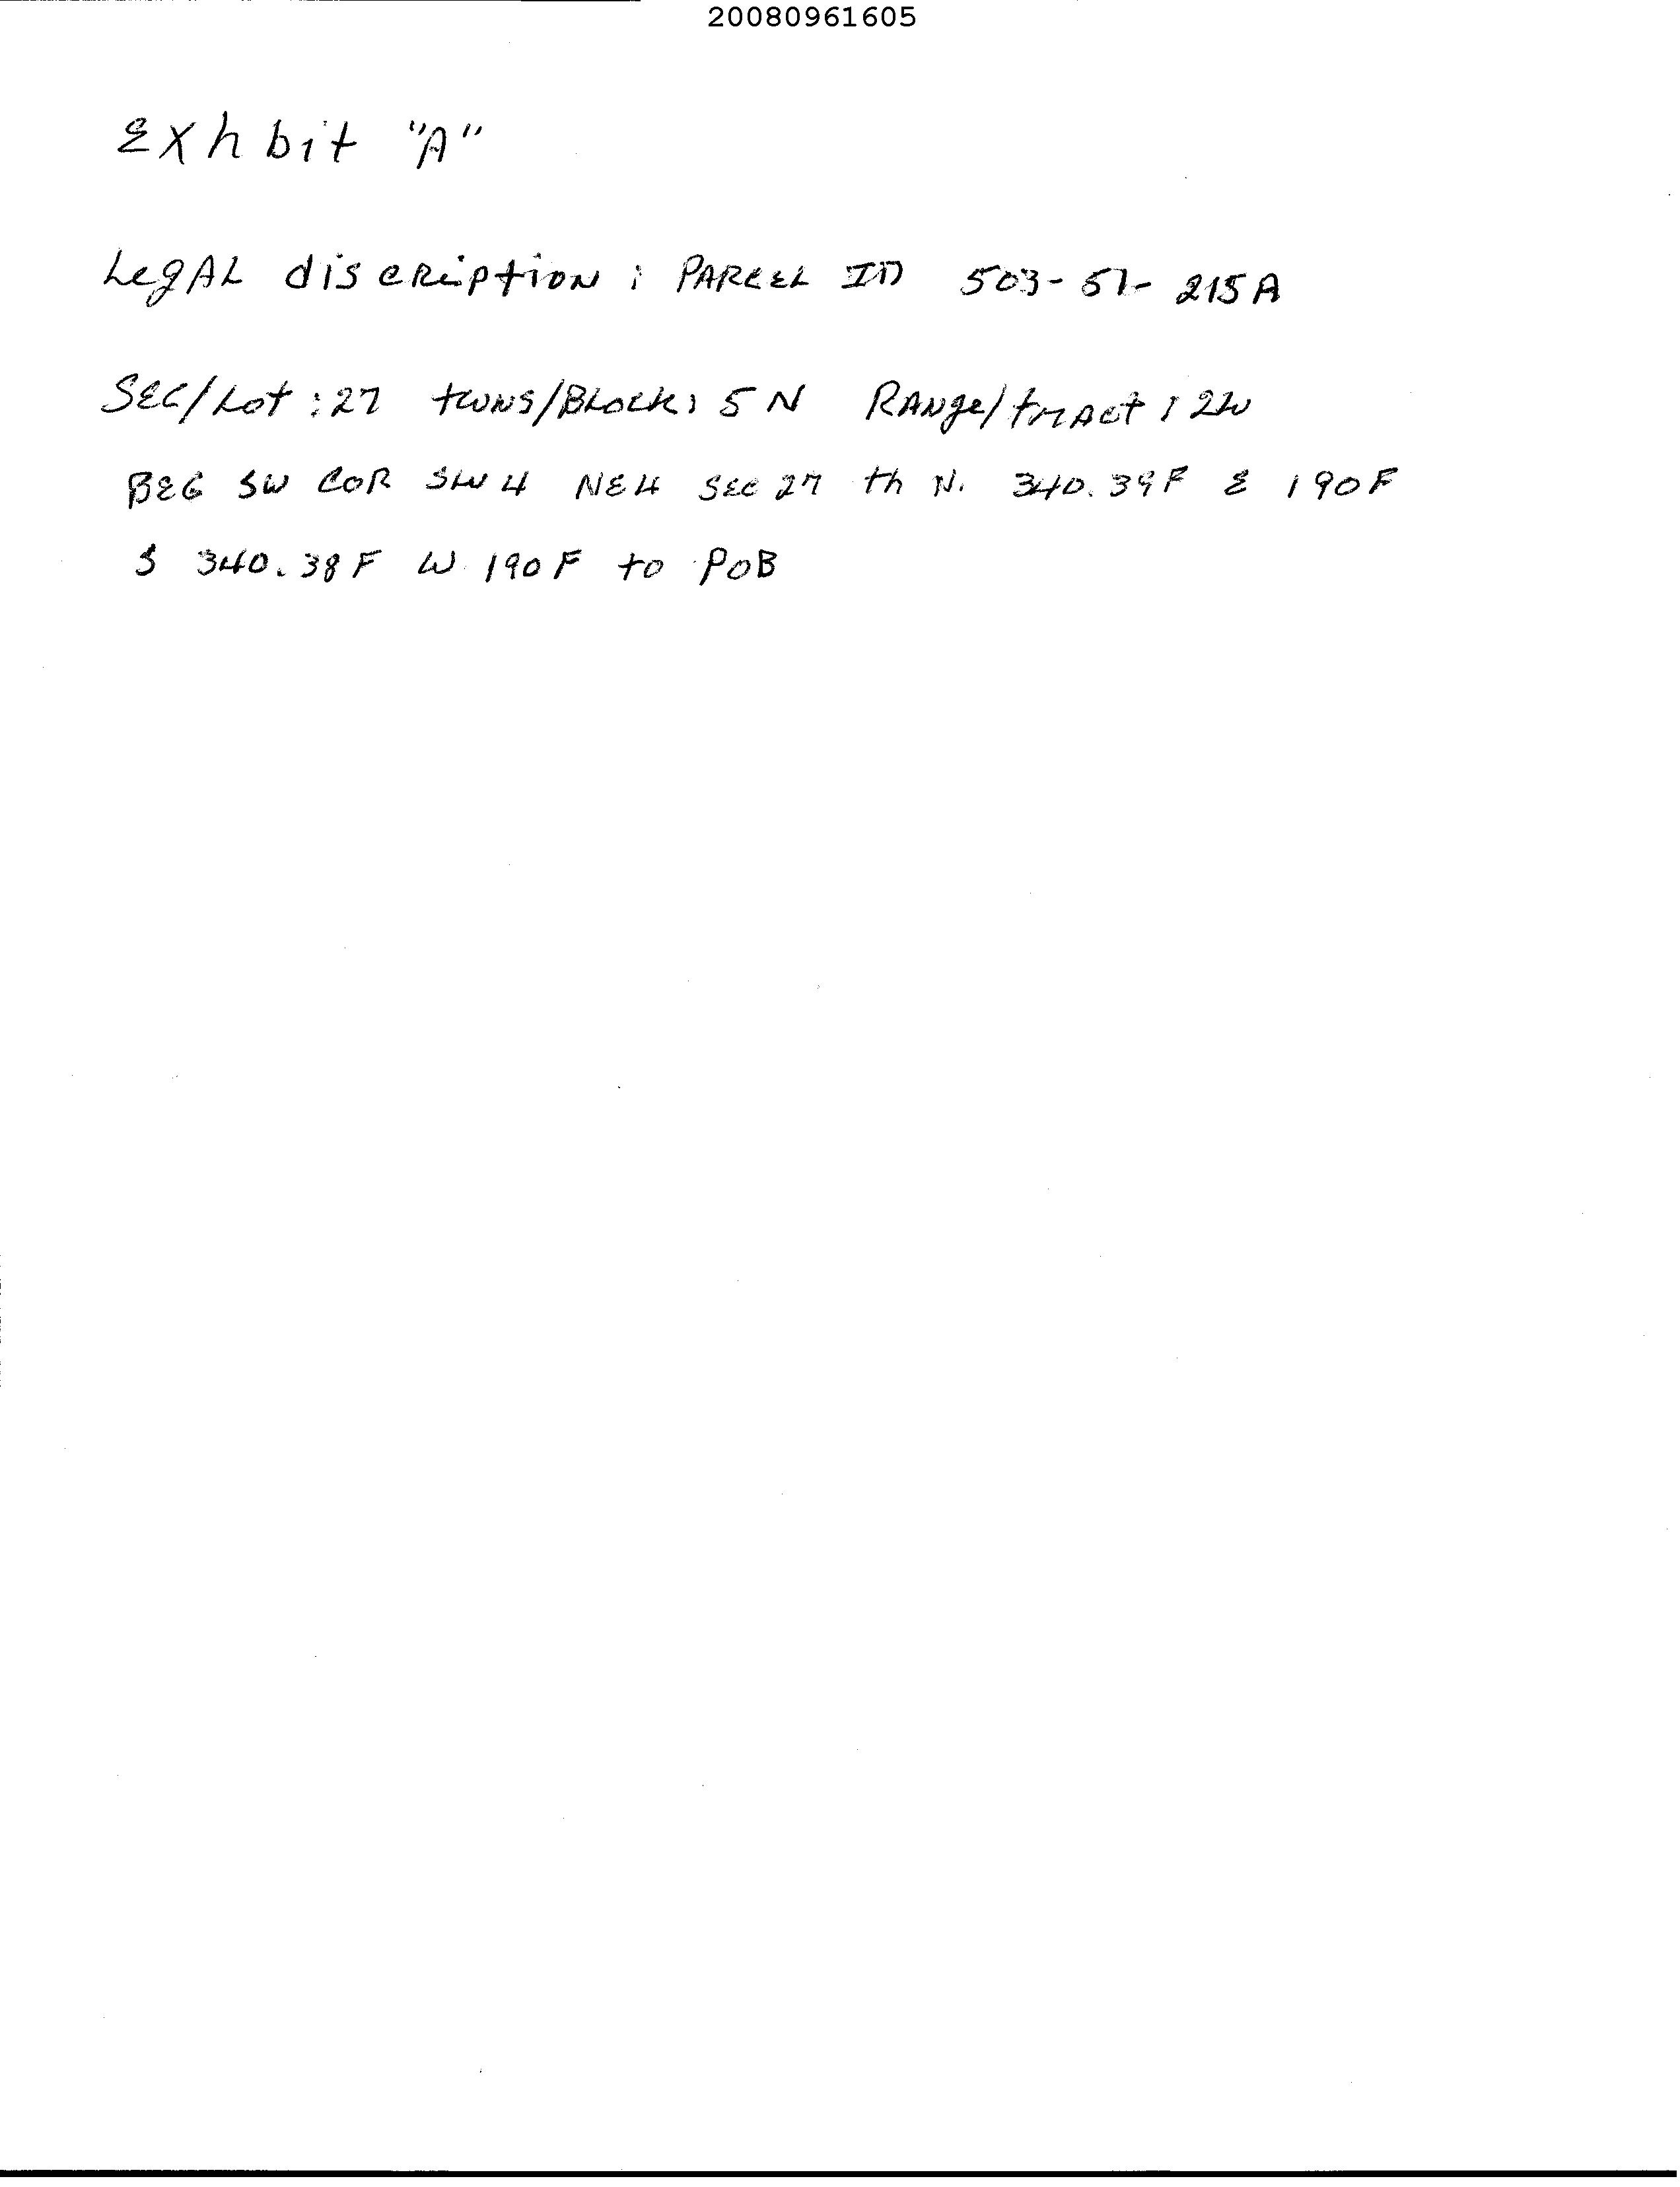 20080961605
Exhbit "A"
LegAL discRiption : PARCEL ID 503-51-215A
SEC/Lot : 27 twns/BLock: 5 N RANge/trAct : 2W
BEG SW COR SW 4 NE4 SEC 27 th N. 340.39F E 190F
S 340.38F W 190F to POB